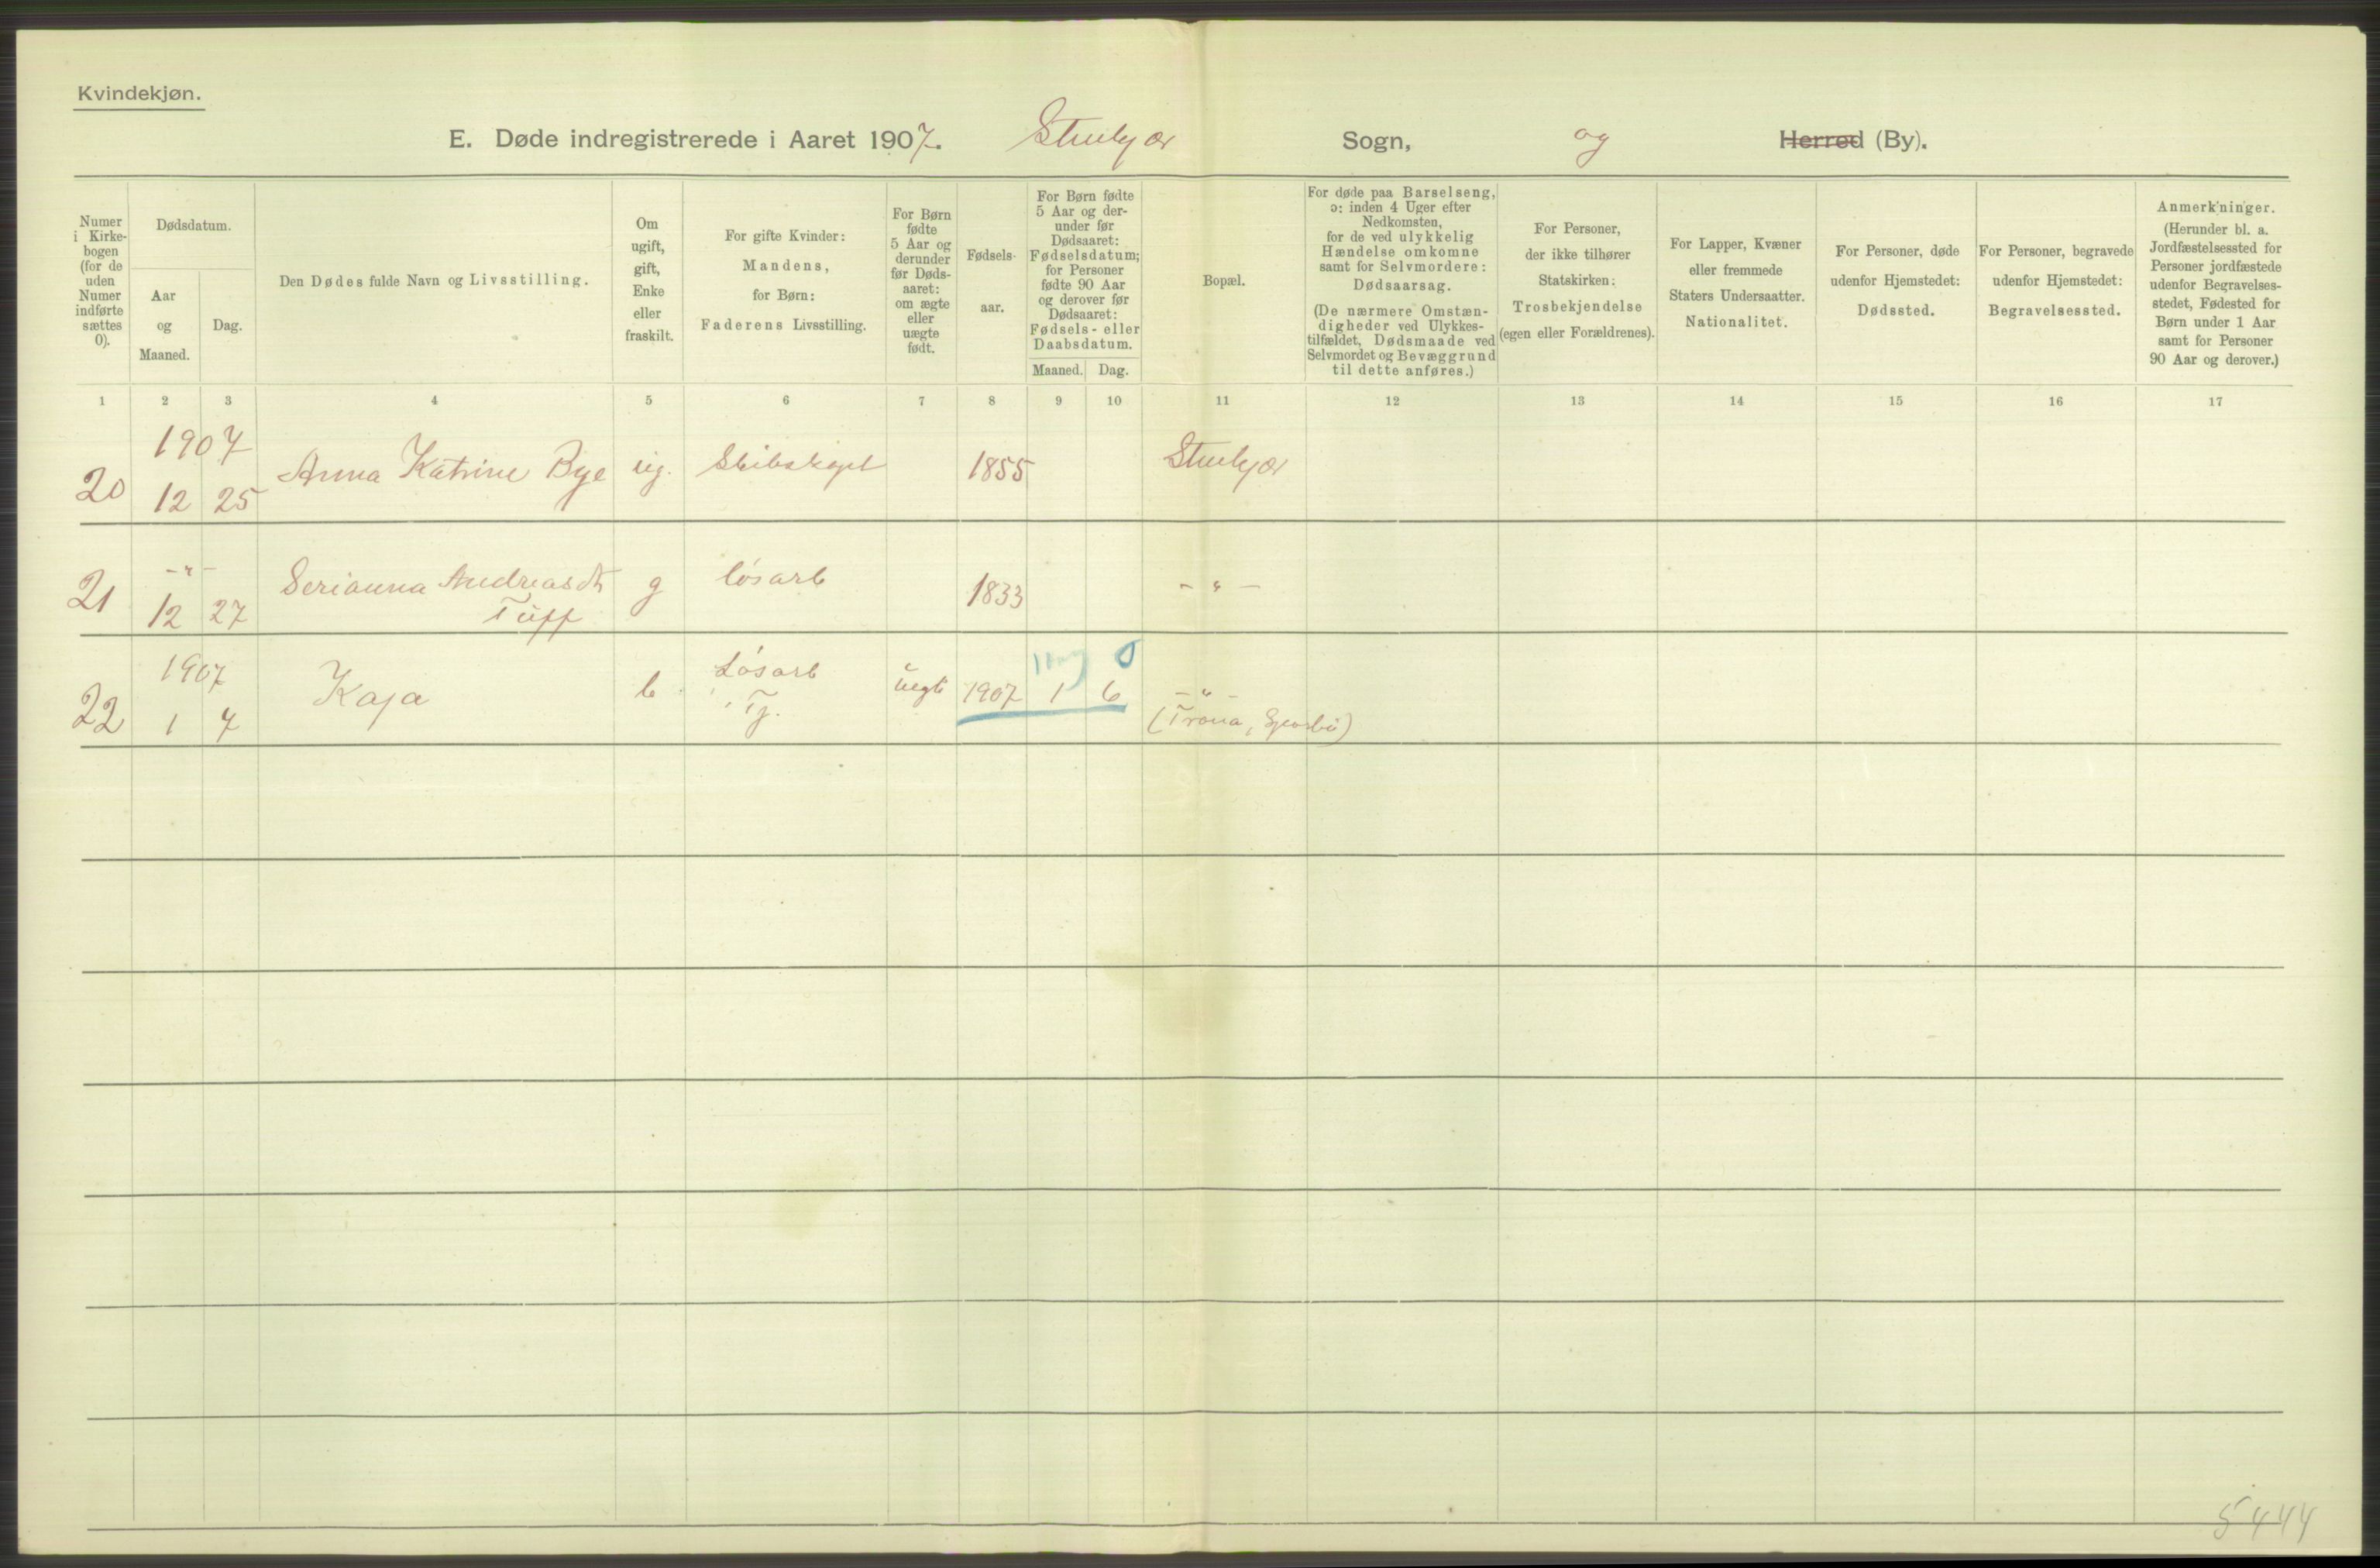 Kvindekjøn.
E. Døde indregistrerede i Aaret 1907. Stenkjær Sogn, og Herred (By).
Numer
i Kirke-
bogen
(for de
uden
Numer
indførte
sættes
0).
Dødsdatum.
Aar
og
Maaned.
Dag.
Den Dødes fulde Navn og Livsstilling.
Om
ugift,
gift,
Enke
eller
fraskilt.
For gifte Kvinder:
Mandens,
for Børn:
Faderens Livsstilling.
For Børn
fødte
5 Aar og
derunder
før Døds-
aaret:
om ægte
eller
uægte
født.
Fødsels-
aar.
For Børn fødte
5 Aar og der-
under før
Dødsaaret:
Fødselsdatum;
for Personer
fødte 90 Aar
og derover før
Dødsaaret:
Fødsels- eller
Daabsdatum.
Maaned. Dag.
Bopæl.
For døde paa Barselseng,
ɔ: inden 4 Uger efter
Nedkomsten,
for de ved ulykkelig
Hændelse omkomne
samt for Selvmordere:
Dødsaarsag.
(De nærmere Omstæn-
digheder ved Ulykkes-
tilfældet, Dødsmaade ved
Selvmordet og Bevæggrund
til dette anføres.)
For Personer,
der ikke tilhører
Statskirken:
Trosbekjendelse
(egen eller Forældrenes).
For Lapper, Kvæner
eller fremmede
Staters Undersaatter.
Nationalitet.
For Personer, døde
udenfor Hjemstedet:
Dødssted.
For Personer, begravede
udenfor Hjemstedet:
Begravelsessted.
Anmerkninger.
(Herunder bl. a.
Jordfæstelsessted for
Personer jordfæstede
udenfor Begravelses-
stedet, Fødested for
Børn under 1 Aar
samt for Personer
90 Aar og derover.)
1 2 3 4 5 6 7 8 9 10 11 12 13 14 15 16 17
1907
20 12 25 Anna Katrine Bye ug. Skibskapt 1855 Stenkjær
-"-
21 12 27 Serianna Andreasdt g løsarb 1833 -"-
Tüff
1907
22 1 7 Kaja b. Løsarb uegt 1907 1 6 -"-
Tj.
5444